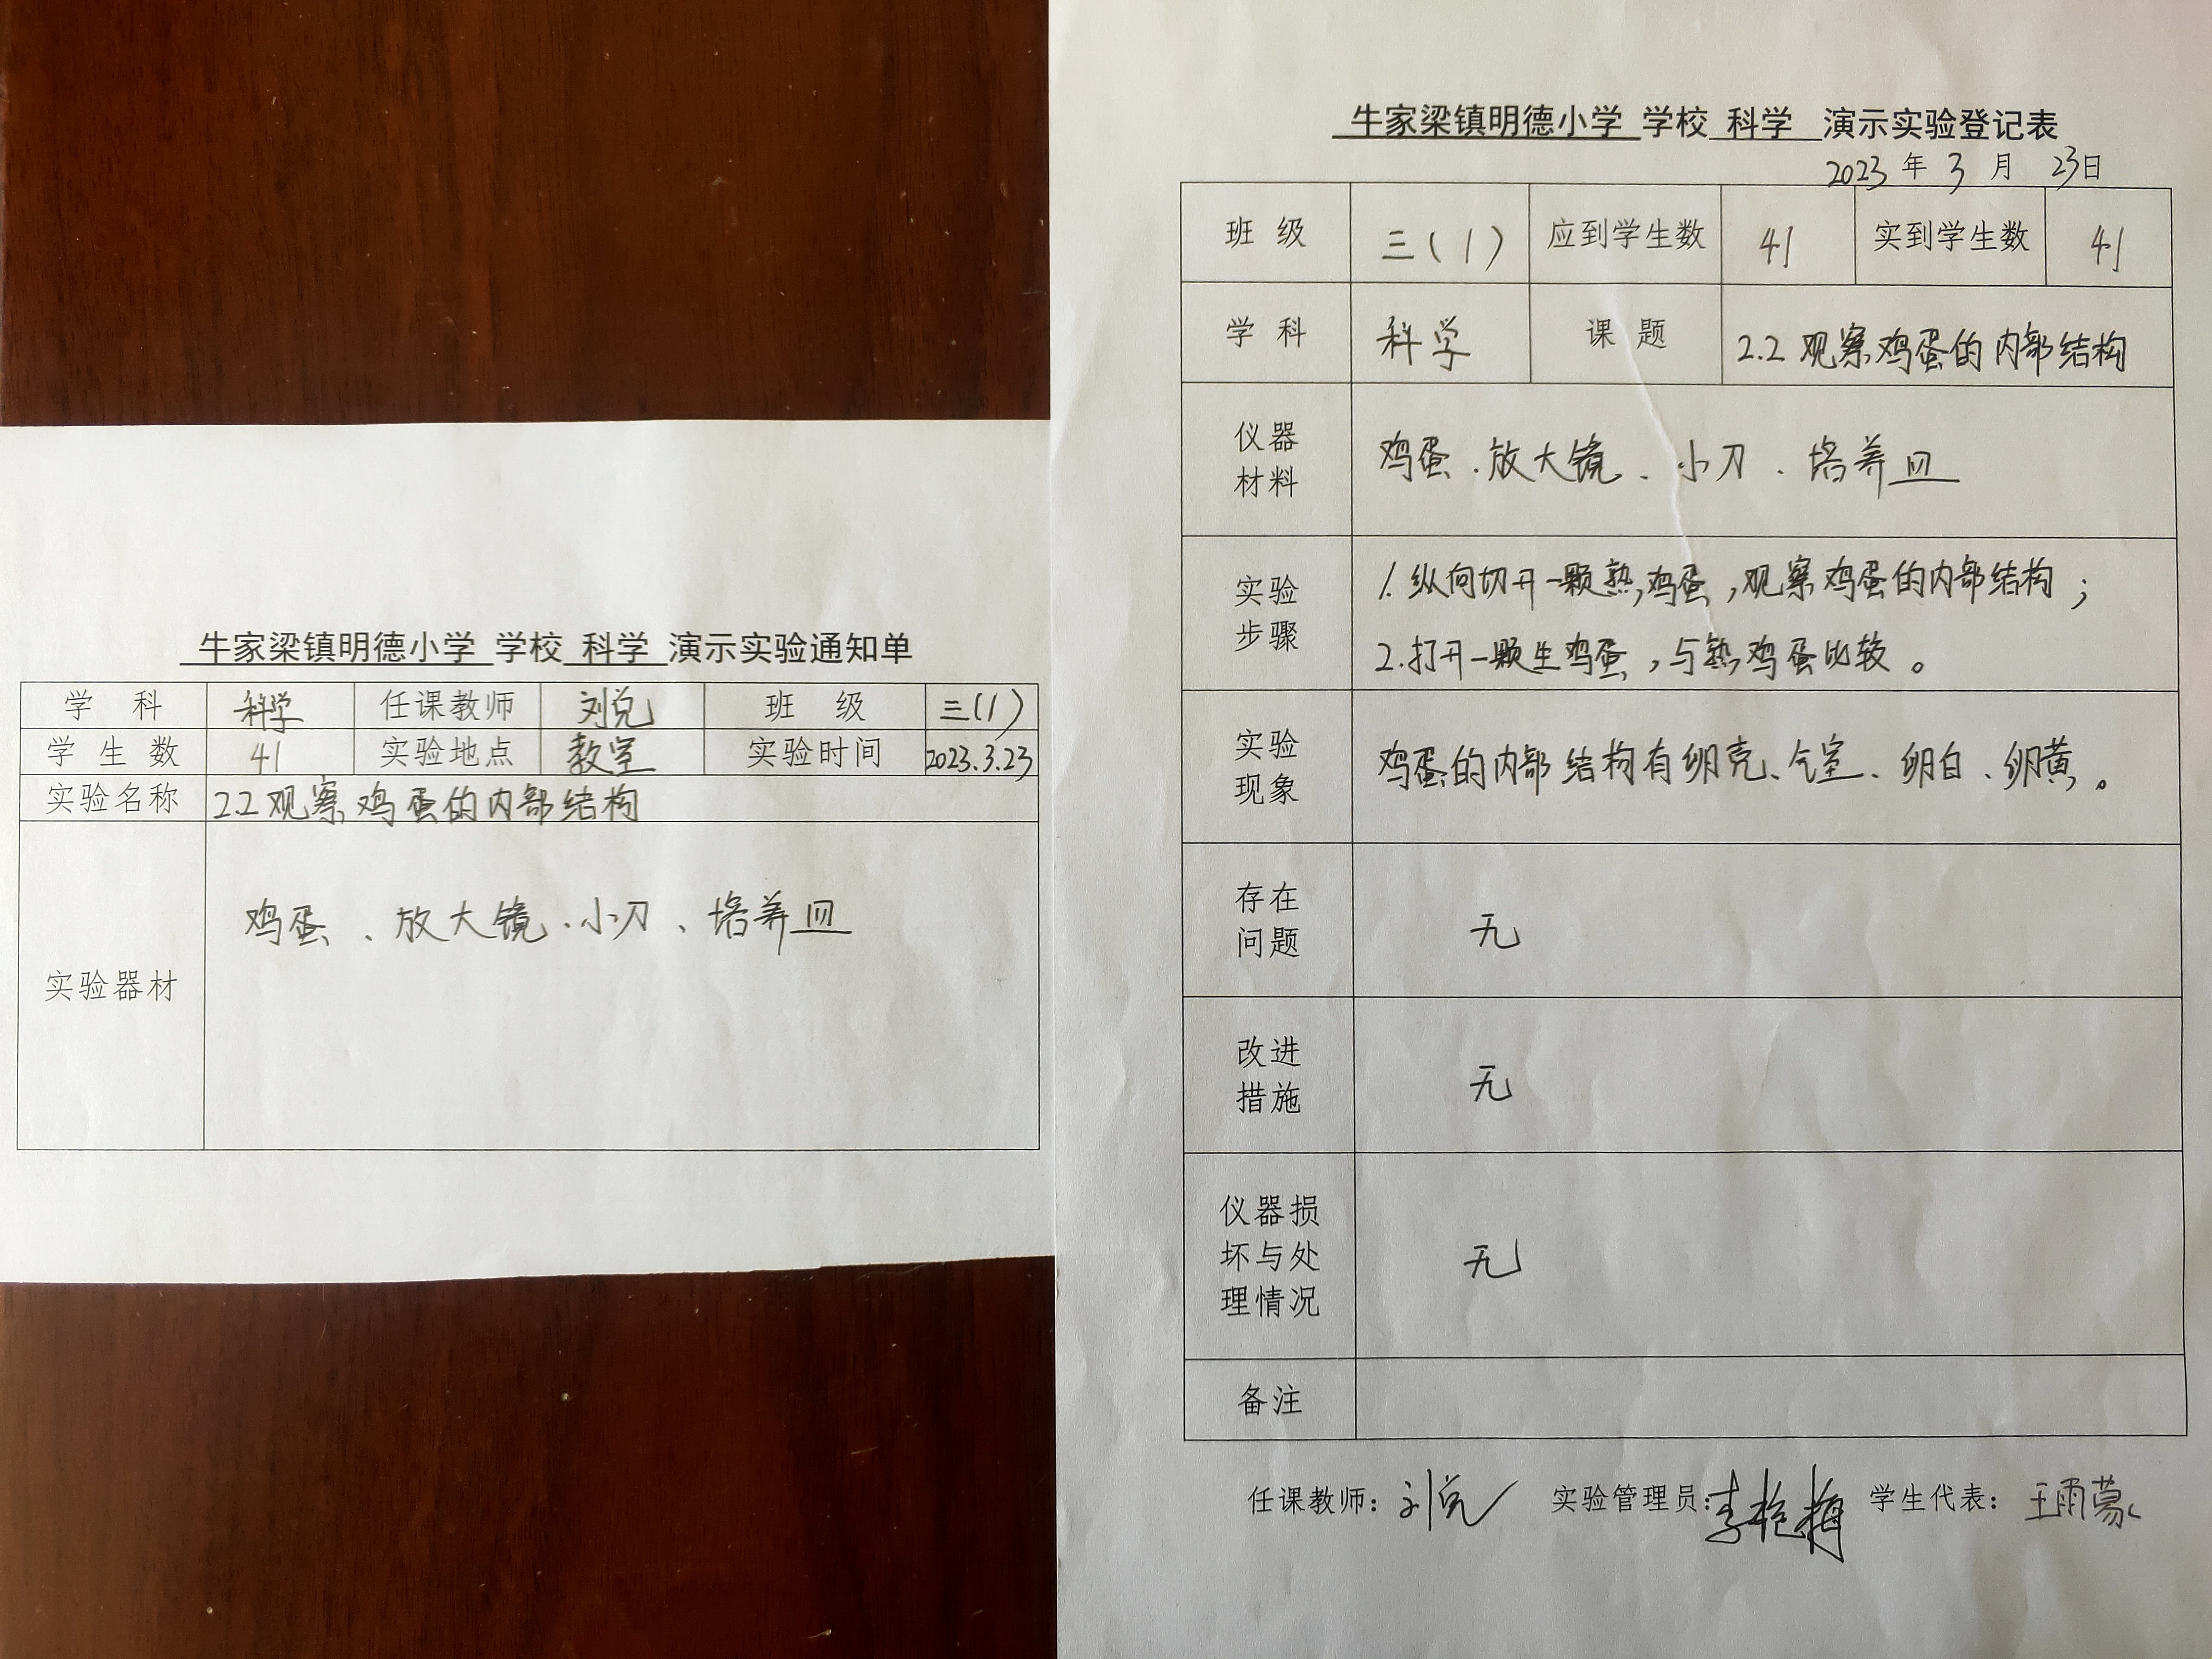 牛家梁镇明德小学 学校 科学 演示实验通知单
学 科 科学 任课教师 刘兑 班 级 三(1)
学 生 数 41 实验地点 教室 实验时间 2023.3.23
实验名称 2.2观察鸡蛋的内部结构
实验器材 鸡蛋、放大镜、小刀、培养皿
牛家梁镇明德小学 学校 科学 演示实验登记表
2023 年 3 月 23日
班 级 三(1) 应到学生数 41 实到学生数 41
学 科 科学 课 题 2.2 观察鸡蛋的内部结构
仪器
材料
鸡蛋、放大镜、小刀、培养皿
实验
步骤
1.纵向切开一颗熟鸡蛋,观察鸡蛋的内部结构;
2.打开一颗生鸡蛋,与熟鸡蛋比较。
实验
现象
鸡蛋的内部结构有卵壳、气室、卵白、卵黄。
存在
问题
无
改进
措施
无
仪器损
坏与处
理情况
无
备注
任课教师: 刘兑 实验管理员: 李艳梅 学生代表: 王雨蒙